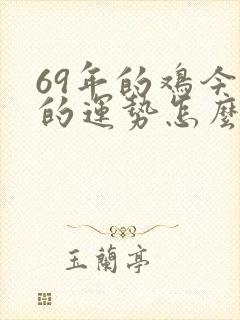 69年的鸡今
的運势怎麼
玉蘭亭